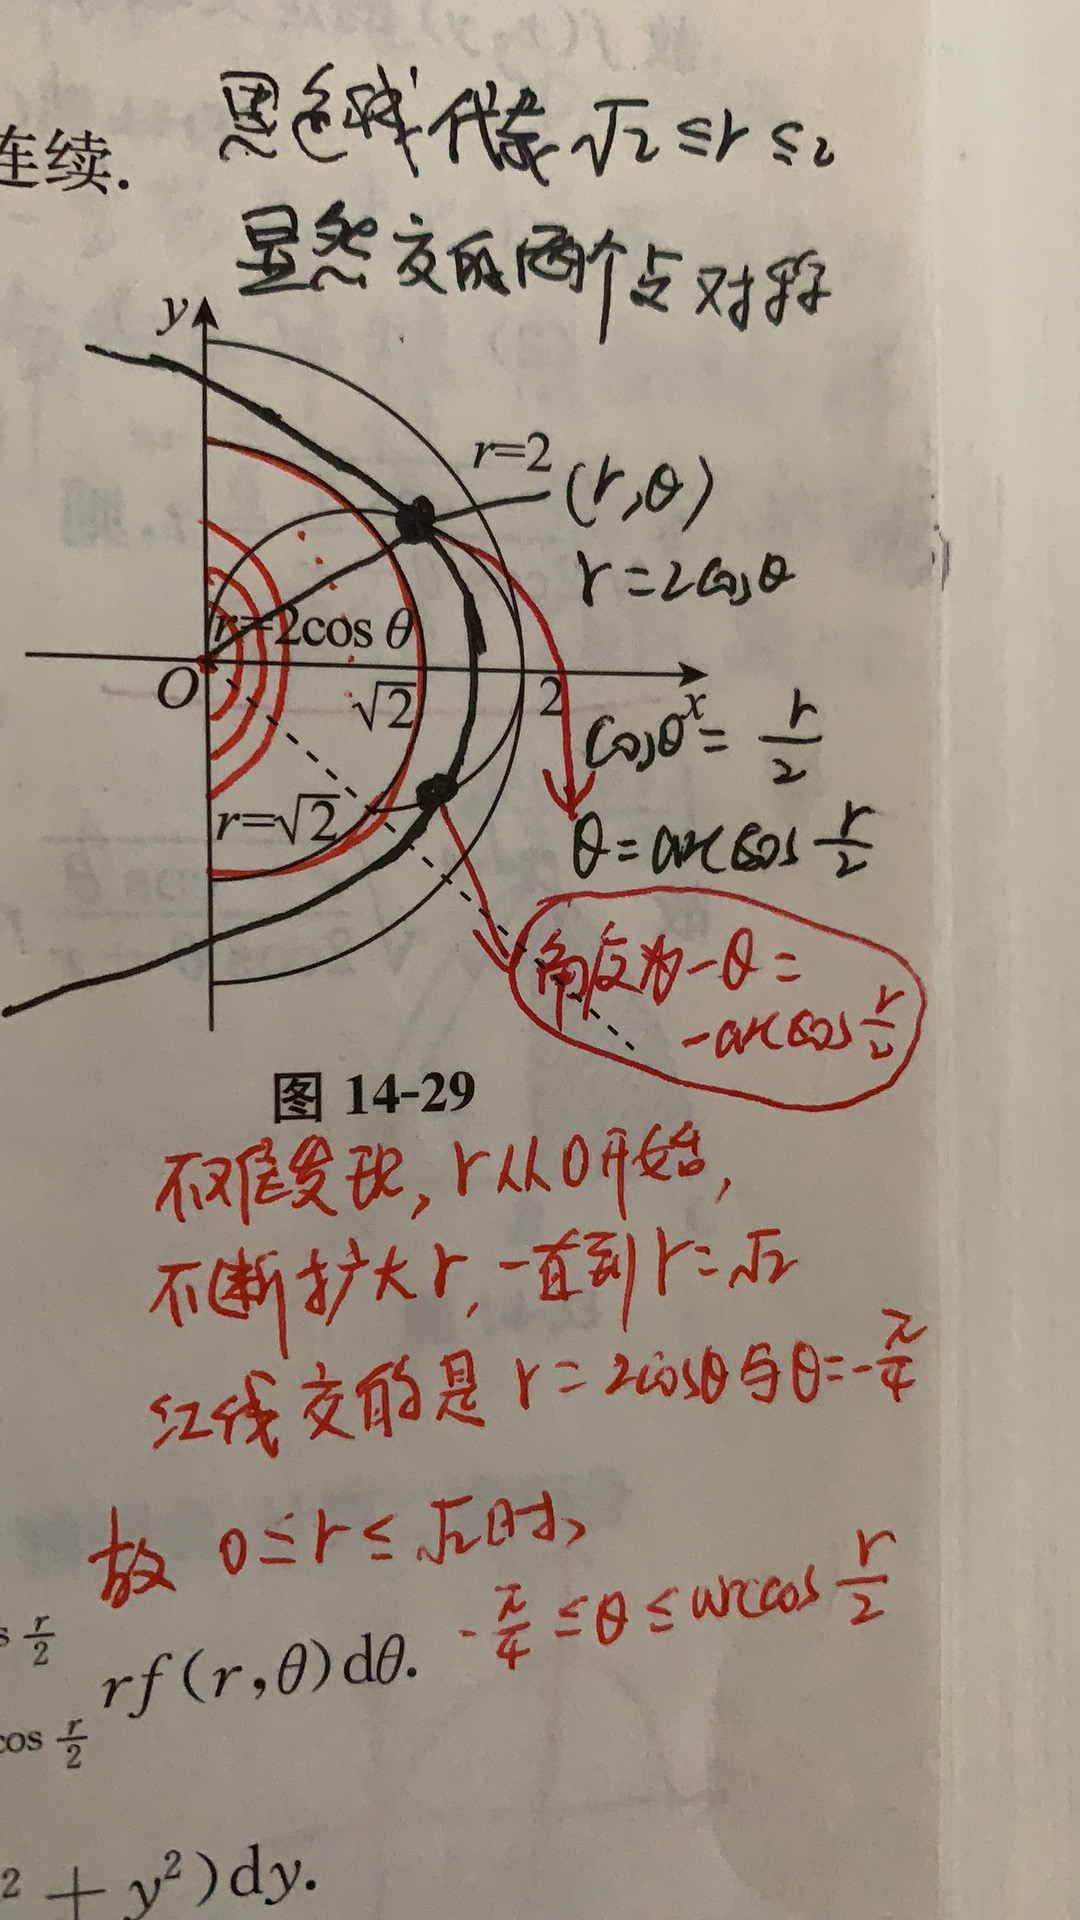 连续.
黑色线代表 √2 ≤ r ≤ 2
显然交的两个点对称
y
r=2
(r,θ)
r=2cosθ
r=2cos θ
O
√2
2
x
cosθ = r/2
r=√2
θ = arccos r/2
角度为 -θ =
-arccos r/2
图 14-29
不难发现, r从0开始,
不断扩大r, 一直到r=√2
红线交的是 r=2cosθ与θ=-π/4
故 0≤r≤√2时,
-π/4 ≤θ≤ arccos r/2
s r/2
rf(r,θ)dθ.
cos r/2
2 + y²)dy.